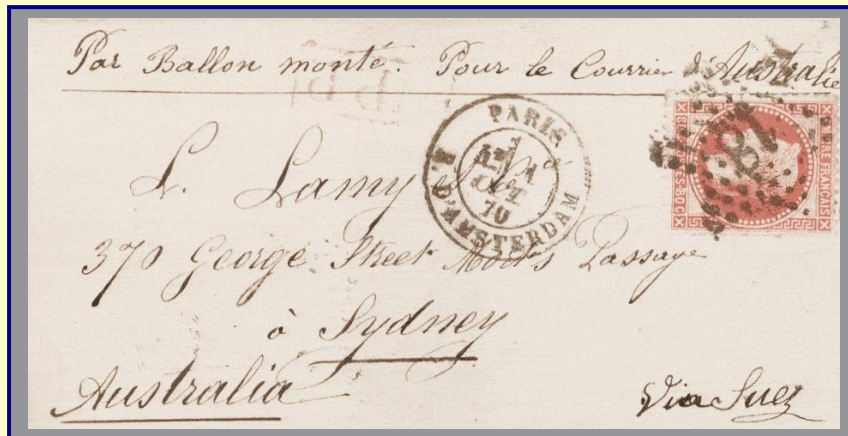 Par Ballon monté. Pour le Courrier d'Australie
PD
PARIS
OCT
70
R. D'AMSTERDAM
18
EMPIRE FRANÇAIS
L. Lamy
370 George Street Mort's Passage
à Sydney
Australia
Via Suez